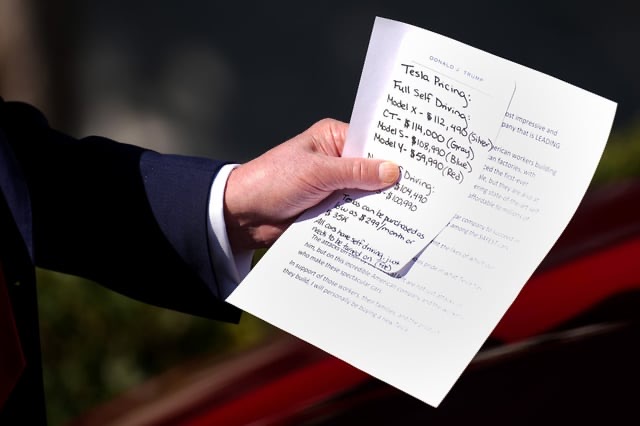 DONALD J. TRUMP
Tesla Pricing:
Full Self Driving:
Model X - $112,490 (Silver)
CT - $114,000 (Gray)
Model S - $108,990 (Blue)
Model Y - $59,990 (Red)
Driving:
$104,490
$100,990
Teslas can be purchased as
low as $299/month or
$35K
All cars have self driving, just
needs to be turned on
most impressive and
company that is LEADING
American workers building
an factories, with
the first-ever
but they are also at
affordable to millions of
company to succeed in
among the SAFEST
The attacks on
him, but on this incredible American company and the
who make these spectacular cars.
In support of those workers, their families, and the
they build, I will personally be buying a new Tesla